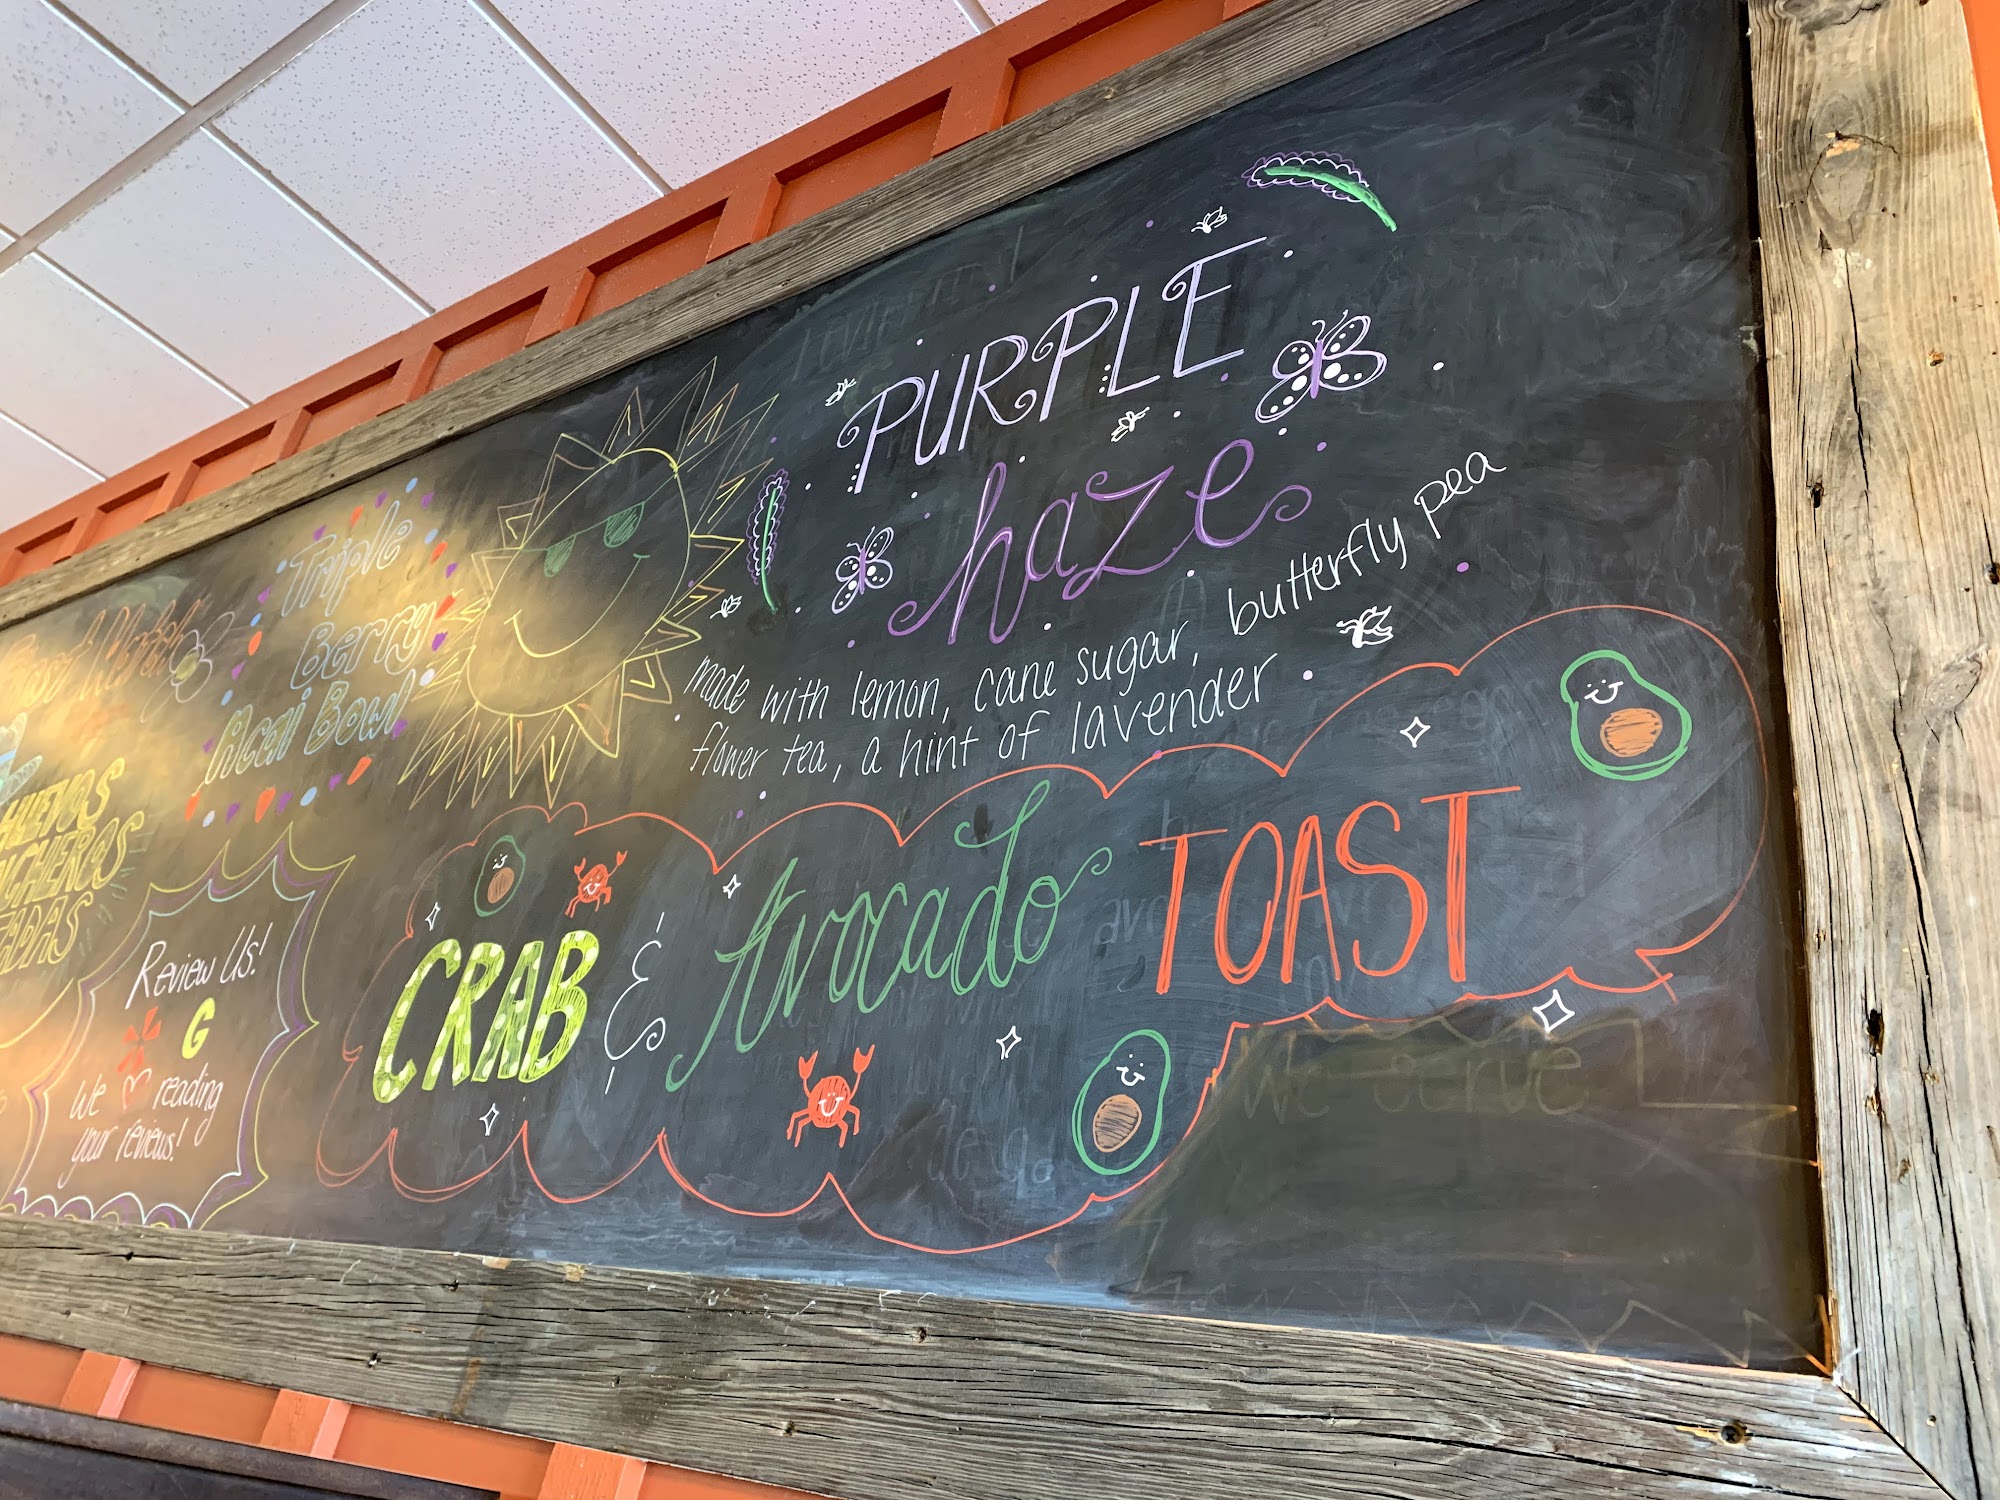 PURPLE
haze
made with lemon, cane sugar, butterfly pea
flower tea, a hint of lavender
Triple
Berry
Acai Bowl
HUEVOS
Review Us!
G
We reading
your reviews!
CRAB & Avocado TOAST
We serve